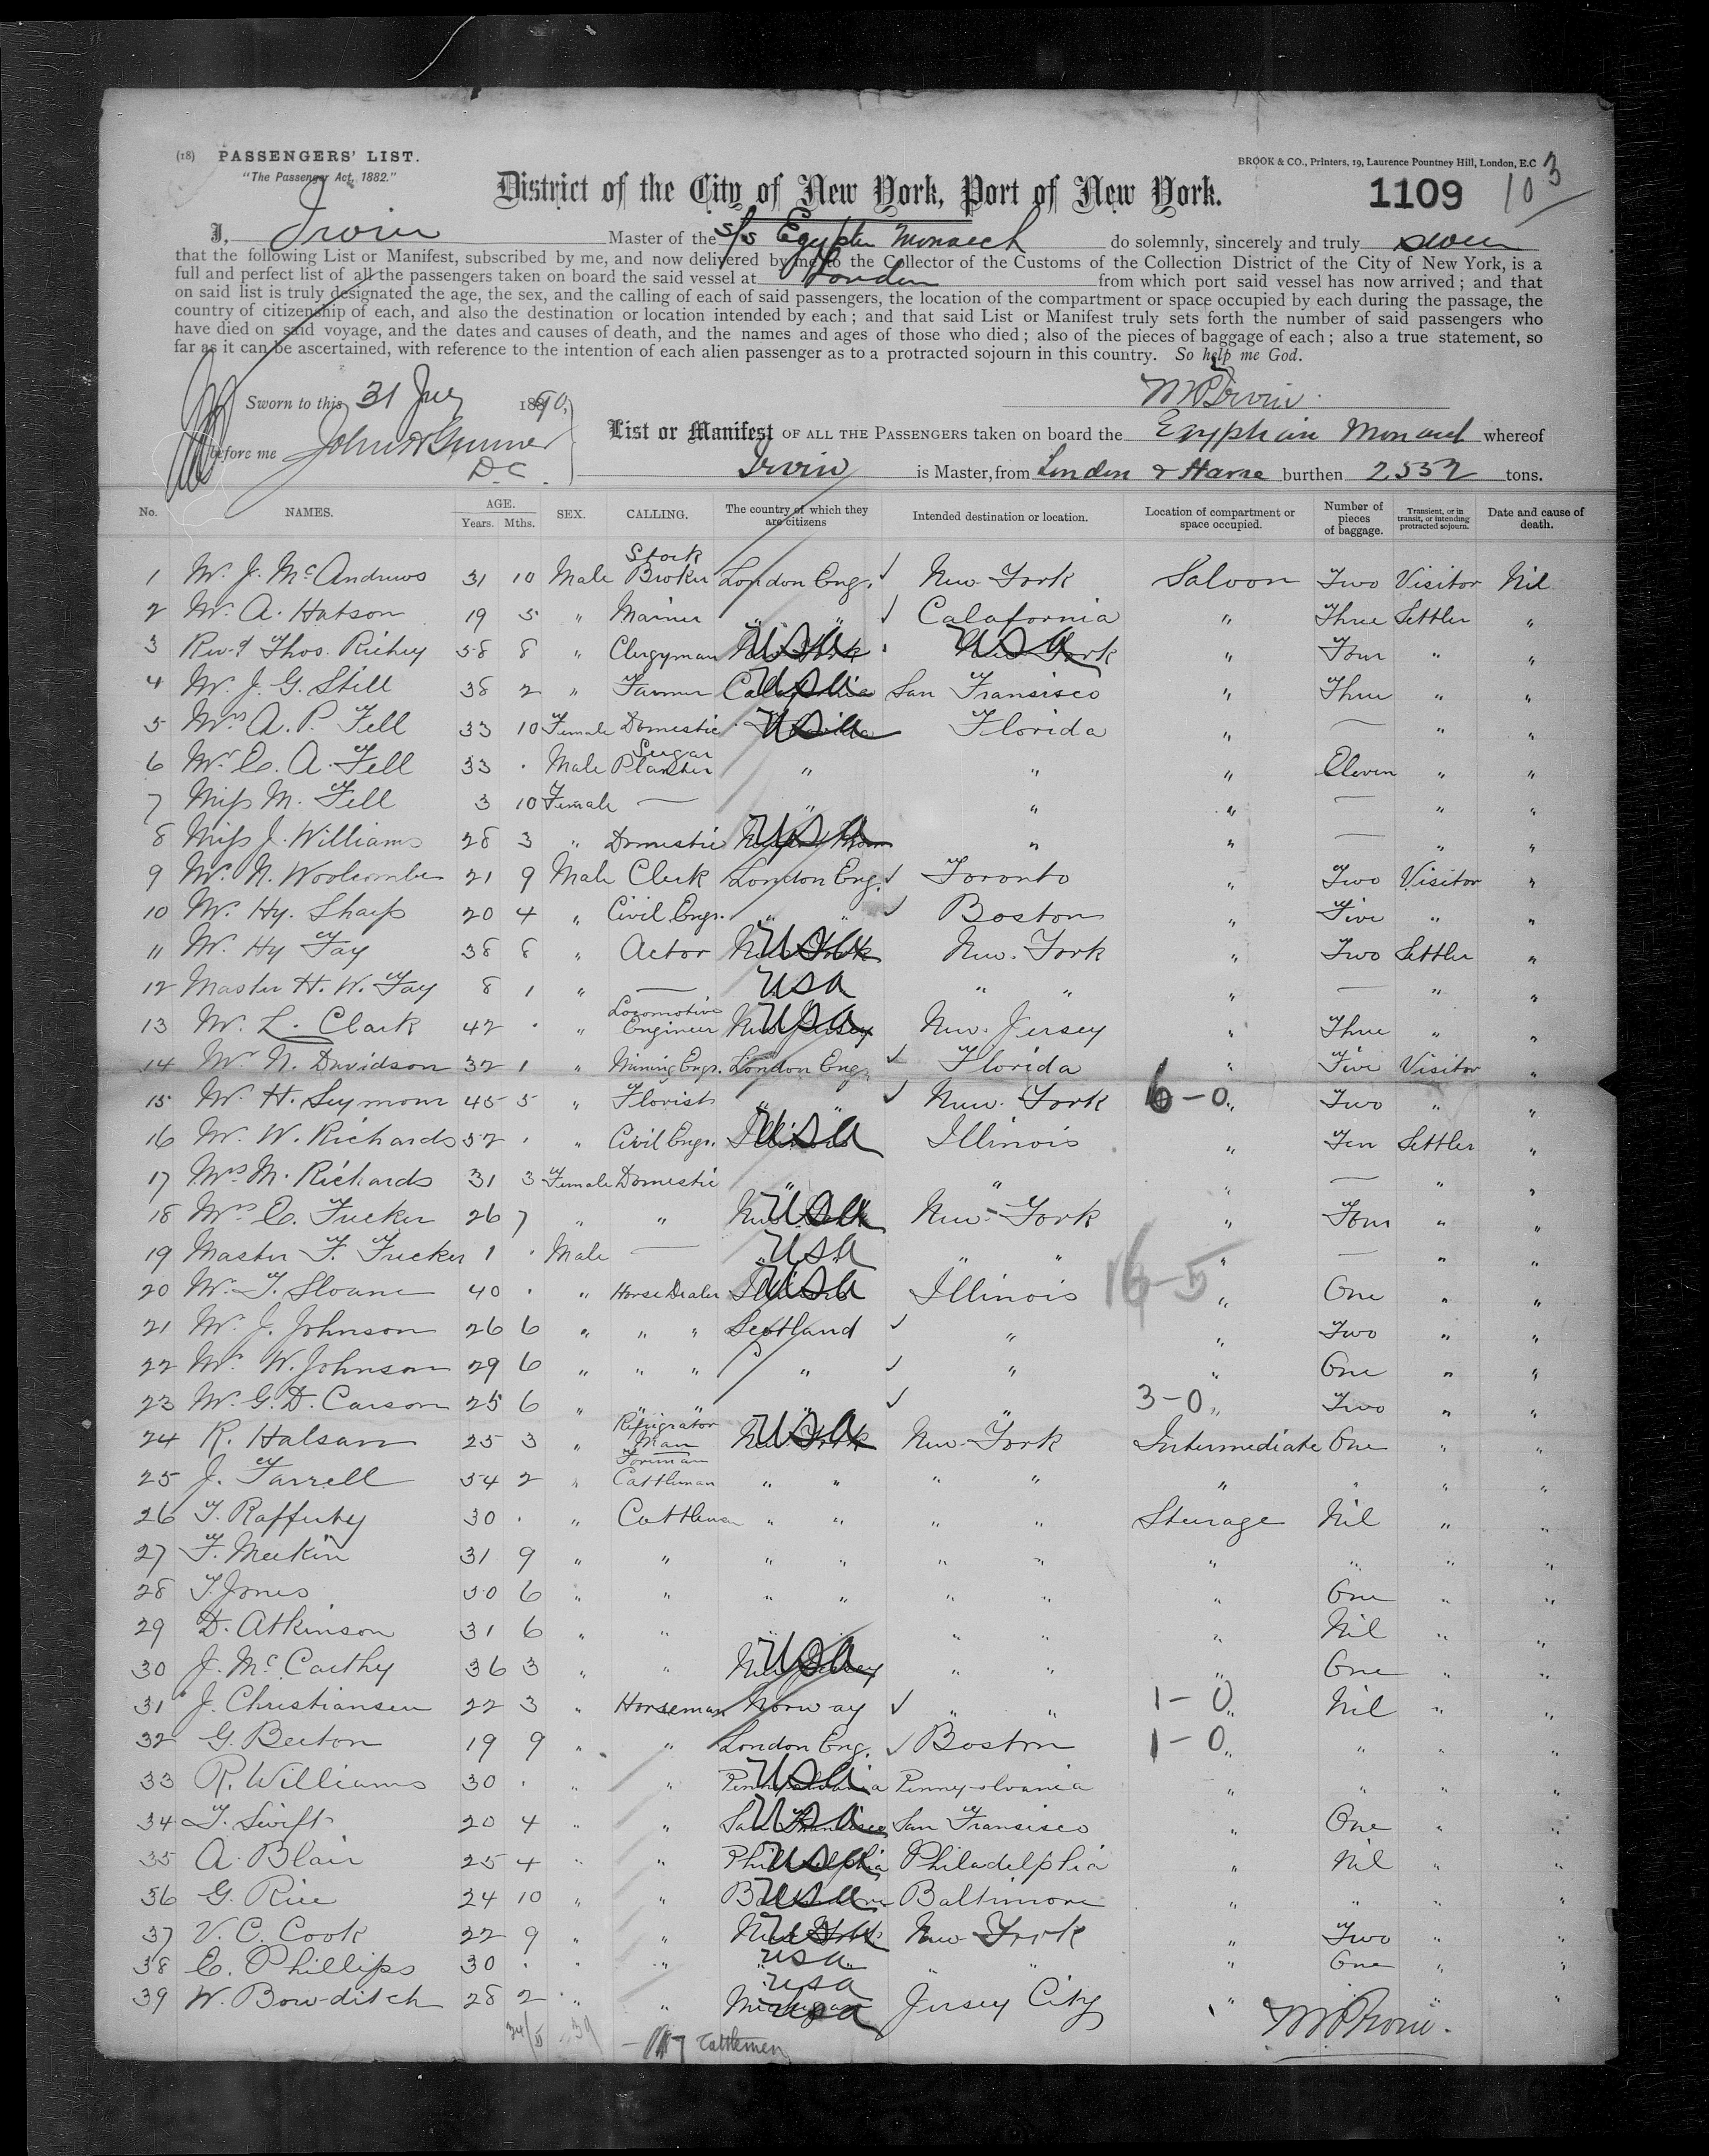 (18) PASSENGERS' LIST.
"The Passenger Act, 1882."
BROOK & CO., Printers, 19, Laurence Pountney Hill, London, E.C
103
District of the City of New York, Port of New York.
1109
I, Irvin Master of the S/S Egyptn Monarch do solemnly, sincerely and truly swear
that the following List or Manifest, subscribed by me, and now delivered by me to the Collector of the Customs of the Collection District of the City of New York, is a
full and perfect list of all the passengers taken on board the said vessel at London from which port said vessel has now arrived; and that
on said list is truly designated the age, the sex, and the calling of each of said passengers, the location of the compartment or space occupied by each during the passage, the
country of citizenship of each, and also the destination or location intended by each; and that said List or Manifest truly sets forth the number of said passengers who
have died on said voyage, and the dates and causes of death, and the names and ages of those who died; also of the pieces of baggage of each; also a true statement, so
far as it can be ascertained, with reference to the intention of each alien passenger as to a protracted sojourn in this country. So help me God.
Sworn to this 31 July 1890,
before me
D.C.
List or Manifest OF ALL THE PASSENGERS taken on board the Egyptian Monarch whereof
Irvin is Master, from London & Havre burthen 2552 tons.
No. NAMES. AGE. Years. Mths. SEX. CALLING. The country of which they are citizens Intended destination or location. Location of compartment or space occupied. Number of pieces of baggage. Transient, or in transit, or intending protracted sojourn. Date and cause of death.
1 Mr. J. McAndrews 31 10 Male Stock Broker London Eng. ✓ New York Saloon Two Visitor Nil
2 Mr. A. Hatson 19 5 " " " ✓ Calafornia " Three Settler "
3 Revd Thos. Richey 58 8 " Clergyman New York USA New York USA " Four " "
4 Mr. J. G. Still 38 2 " Farmer USA San Fransisco " Three " "
5 Mrs A. P. Fell 33 10 Female Domestic Florida USA Florida " — " "
6 Mr. E. A. Fell 33 . Male Sugar Planter " " " Eleven " "
7 Miss M. Fell 3 10 Female — " " " — " "
8 Miss J. Williams 28 3 " Domestic USA " " — " "
9 Mr. N. Woolcombe 21 9 Male Clerk London Eng. ✓ Toronto " Two Visitor "
10 Mr. Hy. Sharp 20 4 " Civil Engr. " " ✓ Boston " Five " "
11 Mr. Hy Fay 38 8 " Actor New York USA New York " Two Settler "
12 Master H. W. Fay 8 1 " — USA " " " — " "
13 Mr. L. Clark 42 . " Locomotive Engineer New Jersey USA New Jersey " Three " "
14 Mr. N. Davidson 32 1 " Mining Engr. London Eng. ✓ Florida " Five Visitor "
15 Mr. H. Seymour 45 5 " Florist " " ✓ New York 6-0 " Two " "
16 Mr. W. Richards 52 . " Civil Engr. Illinois USA Illinois " Ten Settler "
17 Mrs M. Richards 31 3 Female Domestic " " " — " "
18 Mrs E. Tucker 26 7 " " New York USA New York " Four " "
19 Master F. Tucker 1 . Male — USA " " " — " "
20 Mr. T. Sloane 40 . " Horse Dealer Illinois USA Illinois 16-5 " One " "
21 Mr. J. Johnson 26 6 " " " Scotland ✓ " " Two " "
22 Mr. W. Johnson 29 6 " " " " ✓ " " One " "
23 Mr. G. D. Carson 25 6 " " " " ✓ " 3-0 " Two " "
24 R. Halsam 25 3 " Refrigrator Man New York USA New York Intermediate One " "
25 J. Farrell 34 2 " Foreman Cattleman " " " " " " " "
26 T. Rafferty 30 . " Cattleman " " " " Steerage Nil " "
27 F. Meekin 31 9 " " " " " " " " " "
28 T. Jones 30 6 " " " " " " " One " "
29 D. Atkinson 31 6 " " " " " " " Nil " "
30 J. McCarthy 36 3 " " New Jersey USA " " " One " "
31 J. Christiansen 22 3 " Horseman Norway ✓ " " 1-0 " Nil " "
32 G. Beeton 19 9 " " London Eng. ✓ Boston 1-0 " " " "
33 R. Williams 30 . " " Pennsylvania USA Pennyslvania " " " "
34 T. Swift 20 4 " " San Fransisco USA San Fransisco " One " "
35 A. Blair 25 4 " " Philadelphia USA Philadelphia " Nil " "
36 G. Rice 24 10 " " Baltimore USA Baltimore " " " "
37 V. C. Cook 22 9 " " New York USA New York " Two " "
38 E. Phillips 30 . " " " USA " " " One " "
39 W. Bowditch 28 2 " " Michigan USA Jersey City " " " "
34/5 39 17 Cattlemen